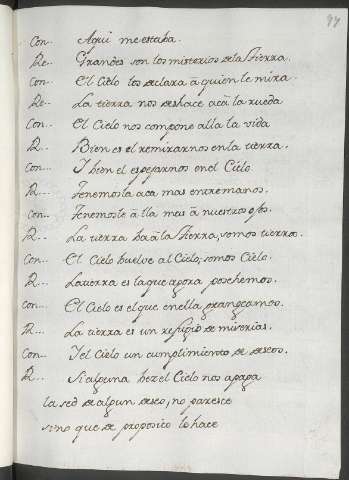 97
Con... Aqui me estaba.
Re... Grandes son los misterios de la tierra.
Con... El Cielo los declara à quien le mira.
Re... La tierra nos deshace acà la rueda
Con... El Cielo nos compone alla la vida
R... Bien es el remirarnos en la tierra.
Con... I bien el espejarnos en el Cielo
R... Tenemosla aca mas entre manos.
Con... Tenemosle àlla mas à nuestros ojos.
R... La tierra ba à la tierra, somos tierra.
Con... El Cielo buelve al Cielo; somos Cielo.
R... La tierra es la que agora poschemos.
Con... El Cielo es el que en ella grangeamos.
R... La tierra es un refugio de miserias.
Con... I el Cielo un cumplimiento de deseos.
R... Si alguna bez el Cielo nos apaga
la sed de algun deseo, no paresce
sino que de proposito lo hace